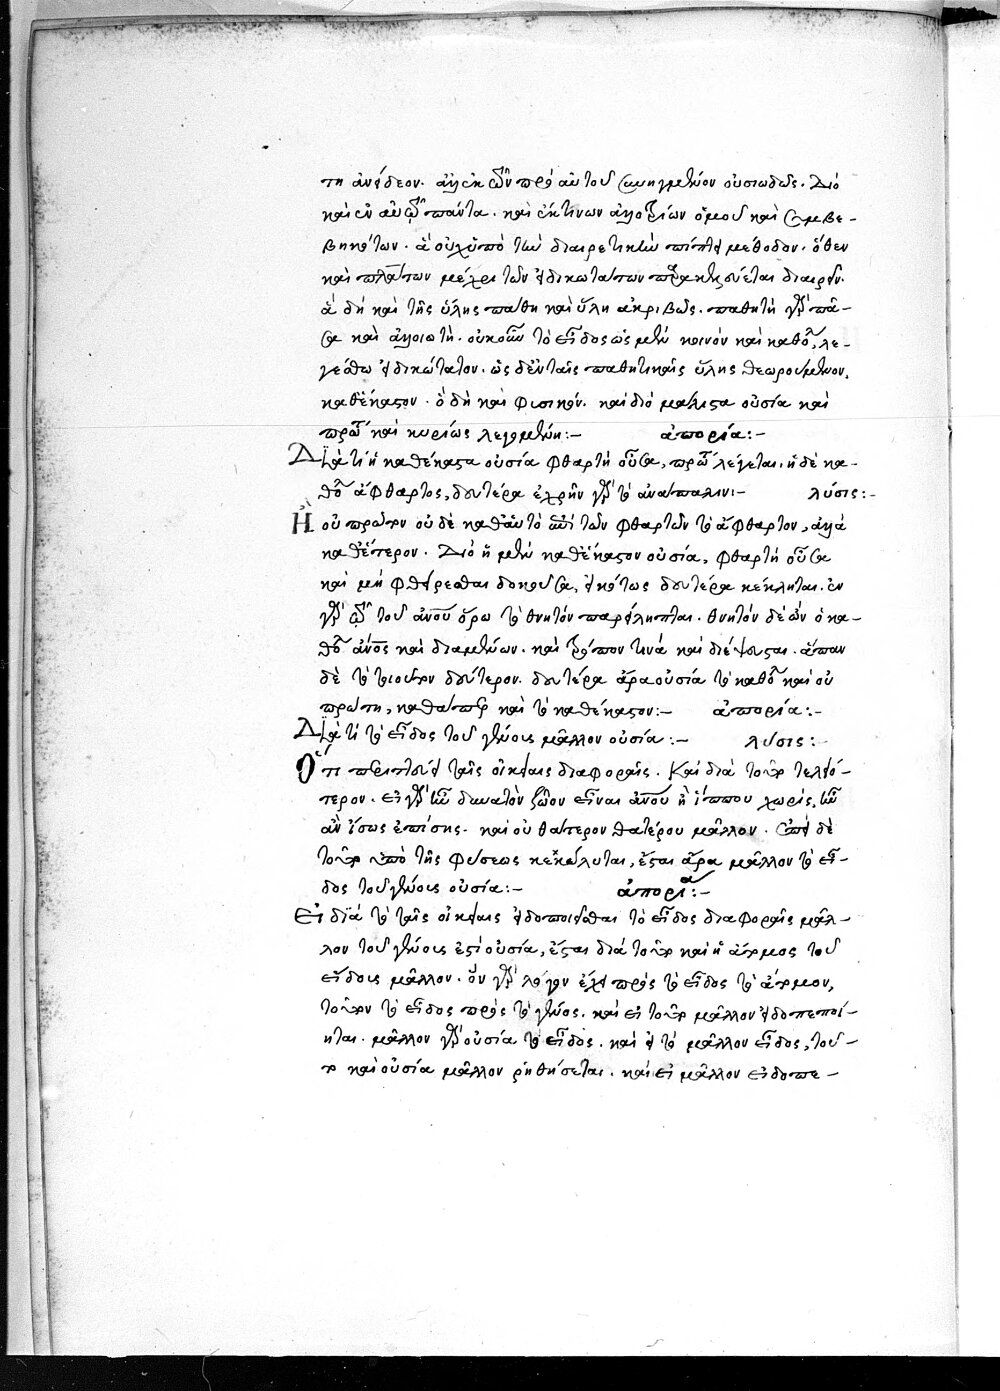 τη ἀνείδεον. ἀλλ' ἐκ τῶν πρὸ αὐτοῦ συνηγμένον οὐσιωδῶς. Διὸ
καὶ ἐν αὐτῶ πάντα. καὶ ἔκ τινων ἀλλοτρίων ὁμοῦ καὶ συμβε-
βηκότων. ἃ οὐχ ὑπὸ τὴν διαιρετικὴν πίπτει μέθοδον. ὅθεν
καὶ πλάτων μέχρι τῶν εἰδικωτάτων διαιρεῖν.
ἃ δὴ καὶ τῆς ὕλης πάθη καὶ ὕλη ἀκριβῶς. παθητὴ γὰρ πᾶ-
σα καὶ ἀλλοιωτή. οὐκοῦν τὸ εἶδος ὡς μὲν κοινὸν καὶ καθόλου, λε-
γέσθω εἰδικώτατον. ὡς δ' ἐν ταῖς παθητικαῖς ὕλης θεωρούμενον,
καθέκαστον. ὃ δὴ καὶ φυσικόν. καὶ διὸ μάλιστα οὐσία καὶ
πρώτη καὶ κυρίως λεγομένη:- ἀπορία:-
Διὰ τί ἡ καθέκαστα οὐσία φθαρτὴ οὖσα, πρώτη λέγεται. ἡ δὲ κα-
θόλου ἄφθαρτος, δευτέρα ἐχρῆν γὰρ τὸ ἀνάπαλιν:- λύσις:-
Ἢ οὐ πρῶτον οὐδὲ καθ' αὑτὸ ἐπὶ τῶν φθαρτῶν τὸ ἄφθαρτον, ἀλλὰ
καθ' ἕτερον. Διὸ ἡ μὲν καθέκαστον οὐσία, φθαρτὴ οὖσα
καὶ μὴ φθείρεσθαι δοκοῦσα, εἰκότως δευτέρα κέκληται. ἐν
γὰρ τῶ τοῦ ἀνου ὅρω τὸ θνητὸν παρείληπται. θνητὸν δὲ ὢν ὁ κα-
θόλου ἄνος καὶ διαμένων. καὶ τρόπον τινὰ καὶ διέψευσται. ἅπαν
δὲ τὸ τοιοῦτον δεύτερον. δευτέρα ἄρα οὐσία τὸ καθόλου καὶ οὐ
πρώτη, καθάπερ καὶ τὸ καθέκαστον:- ἀπορία:-
Διὰ τί τὸ εἶδος τοῦ γένους μᾶλλον οὐσία:- λύσις:-
Ὅτι περιττεύει ταῖς οἰκείαις διαφοραῖς. Καὶ διὰ τοῦτο τελειό-
τερον. εἰ γὰρ ἦν δυνατὸν ζῶον εἶναι ἀνου ἢ ἵππου χωρίς, ἦν
ἂν ἴσως ἐπίσης. καὶ οὐ θάτερον θατέρου μᾶλλον. ἐπεὶ δὲ
τοῦτο ὑπὸ τῆς φύσεως κεκώλυται, ἔσται ἄρα μᾶλλον τὸ εἶ-
δος τοῦ γένους οὐσία:- ἀπορία:-
Εἰ διὰ τὸ ταῖς οἰκείαις εἰδοποιεῖσθαι τὸ εἶδος διαφοραῖς μᾶλ-
λον τοῦ γένους ἐστὶ οὐσία, ἔσται διὰ τοῦτο καὶ ἡ ἄτομος τοῦ
εἴδους μᾶλλον. ὃν γὰρ λόγον ἔχει πρὸς τὸ εἶδος τὸ ἄτομον,
τοῦτον τὸ εἶδος πρὸς τὸ γένος. καὶ εἰ τοῦτο μᾶλλον εἰδοπεποί-
ηται. μᾶλλον γὰρ οὐσία τὸ εἶδος. καὶ εἰ τὸ μᾶλλον εἶδος, τοῦ-
το καὶ οὐσία μᾶλλον ῥηθήσεται. καὶ εἰ μᾶλλον εἰδοπε-